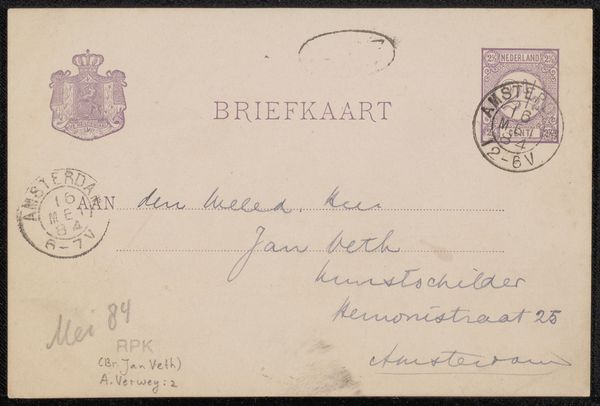 NEDERLAND
2½ 2½
CENT
AMSTERDAM
16
MEI
84
12-6V
BRIEFKAART
AMSTERDAM
16
MEI
84
6-7V
AAN den Weled. Heer
Jan Veth
Kunstschilder
Hemonistraat 25
Amsterdam
Mei 84
RPK
(Br. Jan Veth)
A. Verwey: 2